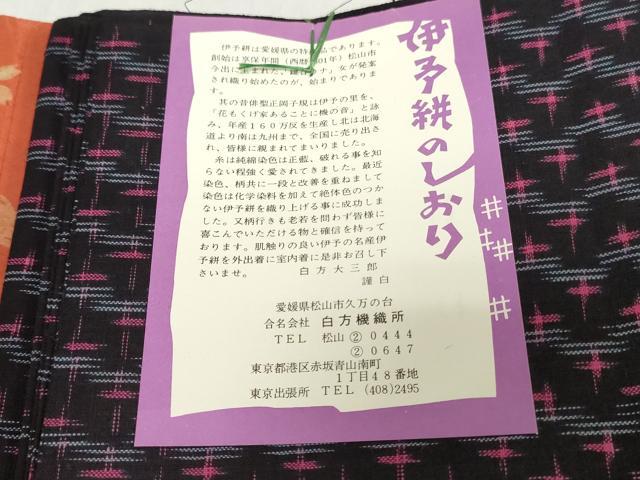 伊予絣のしおり
伊予絣は愛媛県の特 品であります。
創始は享保年間(西暦 01年)松山市
今出に生まれた、鎌 ナ」女が発案
され織り始めたのが、始まりでありま
す。
其の昔俳聖正岡子規は伊予の里を、
『花もくげ家あるごとに機の音』と詠
み、年産160万反を生産し北は北海
道より南は九州まで、全国に売り出さ
れ、皆様に親まれてまいりました。
糸は純綿染色は正藍、破れる事を知
らない程強く愛されてきました。最近
染色、柄共に一段と改善を重ねまして
染色は化学染料を加えて絶体色のつか
ない伊予絣を織り上げる事に成功しま
した。又柄行きも老若を問わず皆様に
喜こんでいただける物と確信を持って
おります。肌触りの良い伊予の名産伊
予絣を外出着に室内着に是非お召し下
さいませ。 白方大三郎
謹白
愛媛県松山市久万の台
合名会社 白方機織所
TEL 松山 ② 0444
② 0647
東京都港区赤坂青山南町
1丁目48番地
東京出張所 TEL (408)2495